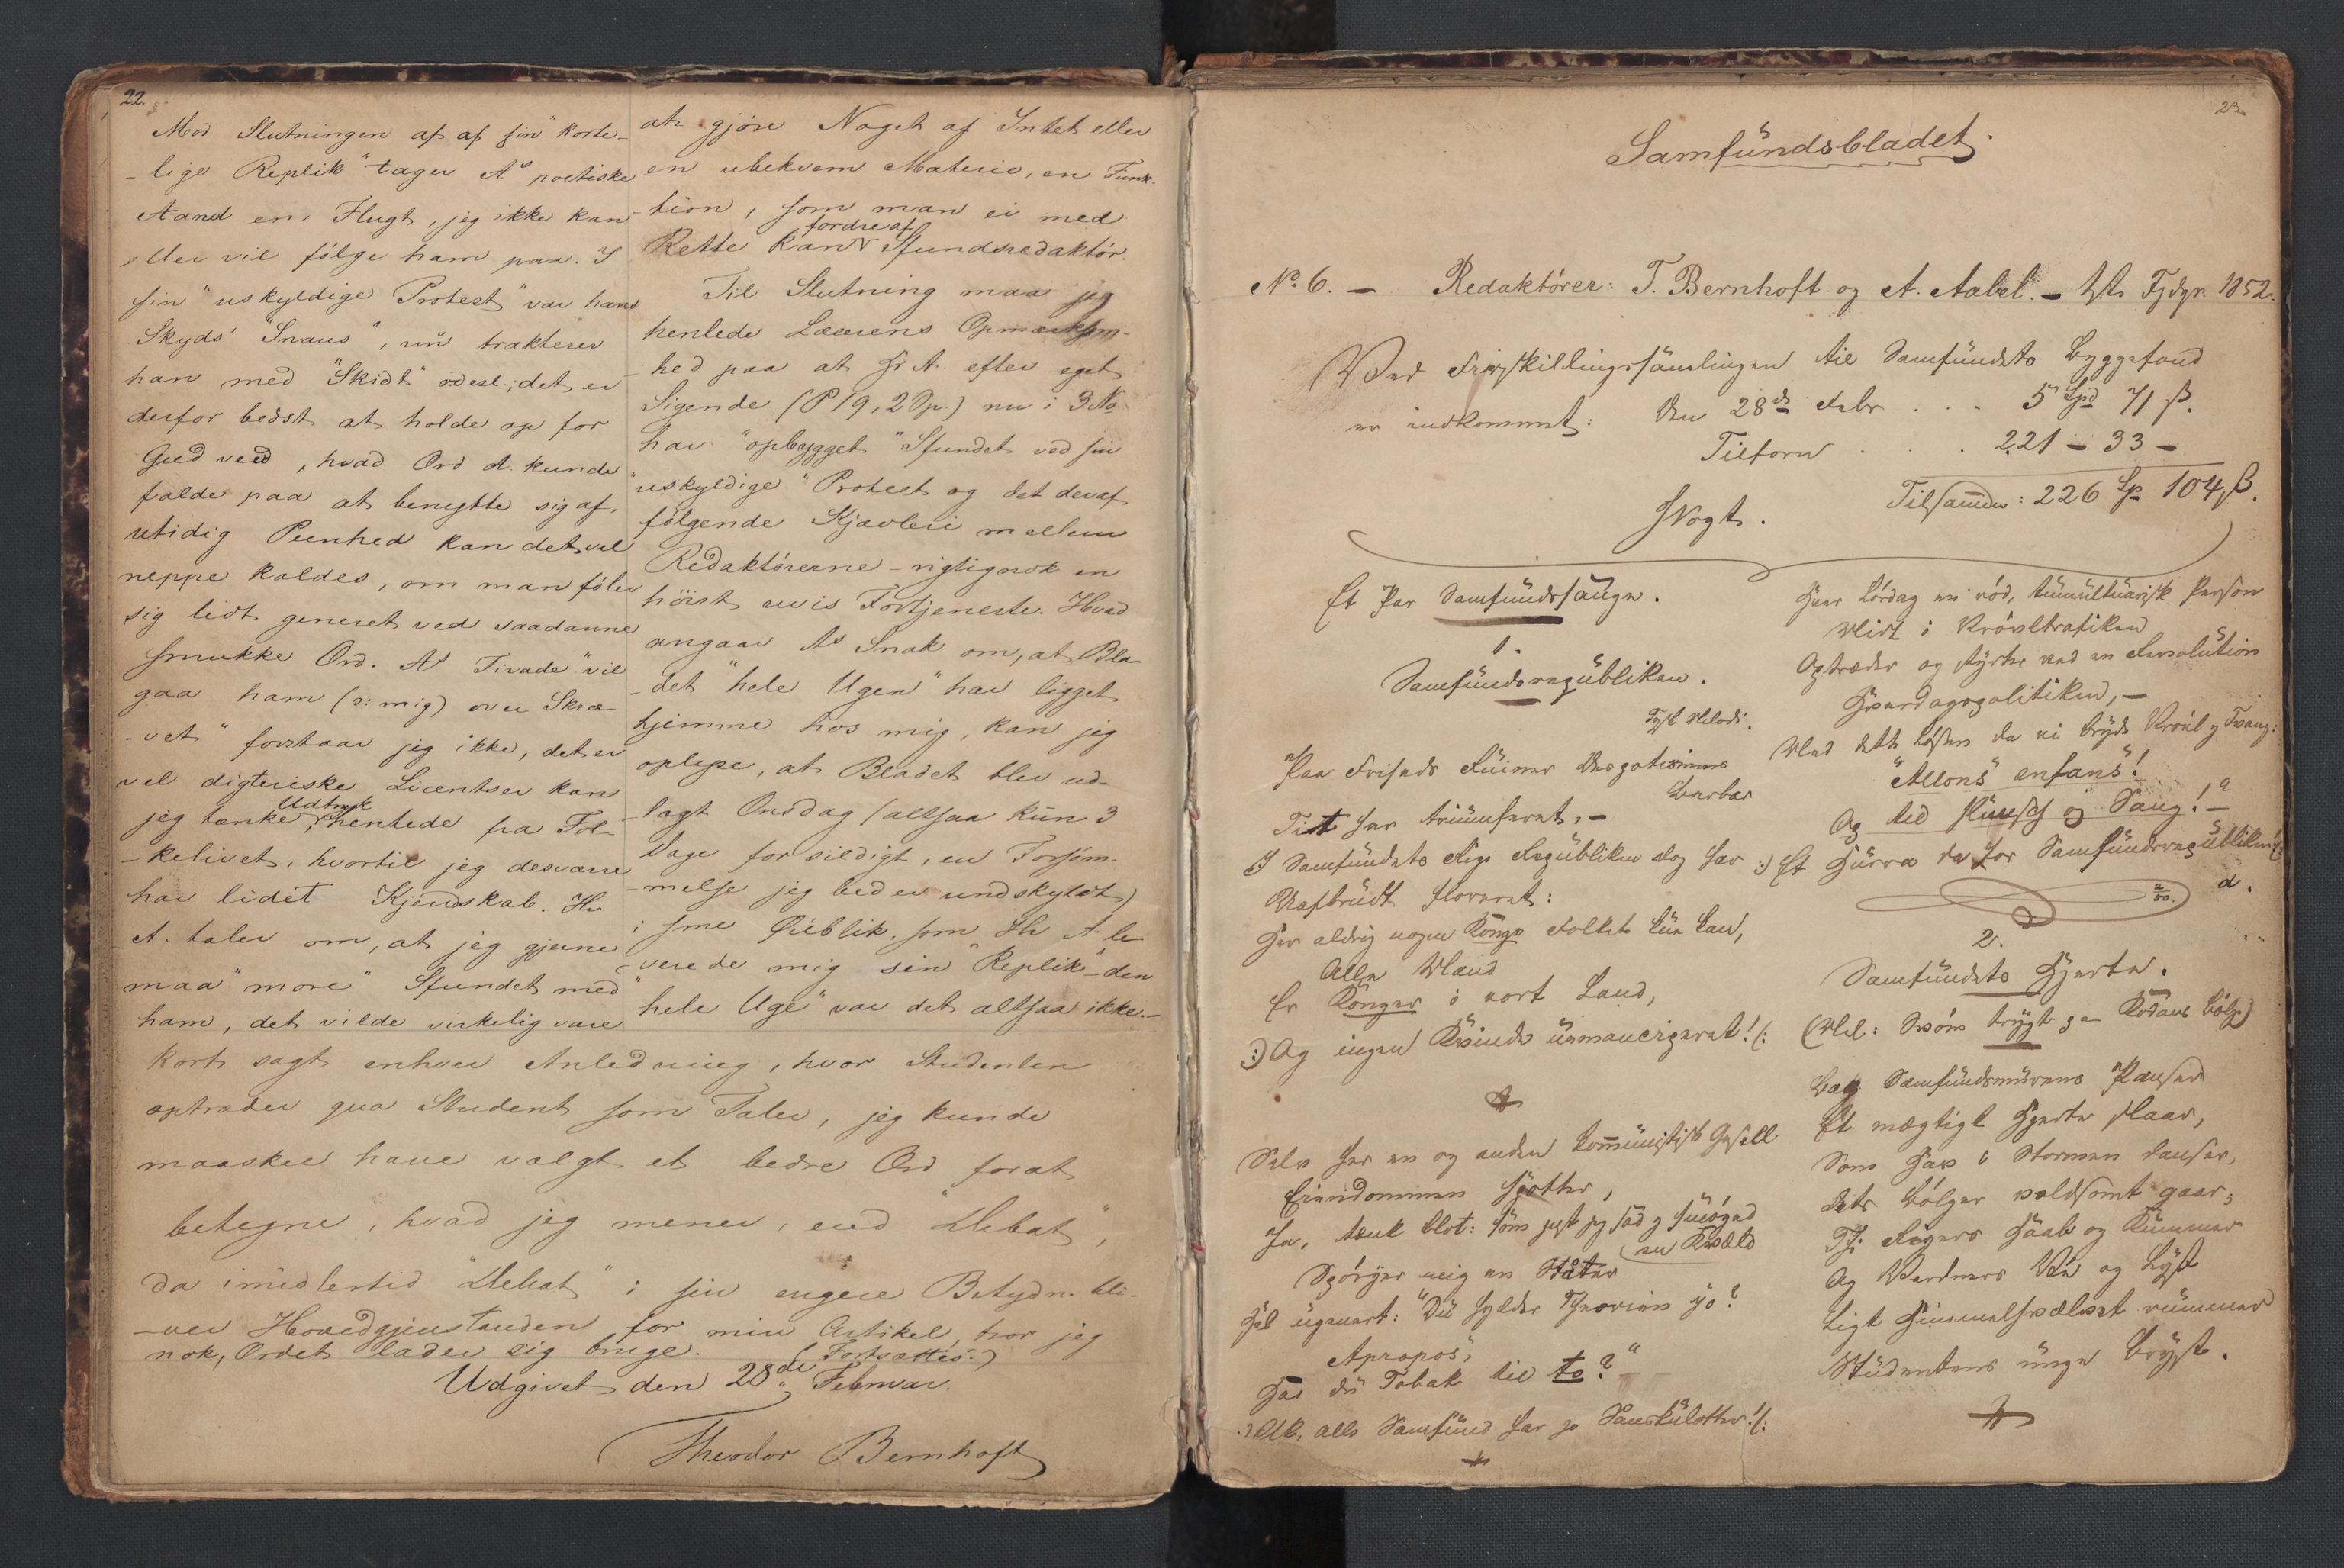 22.
Mod Slutningen af af sin "korte-
-lige Replik" tager A's poetiske
Aand en Flugt, jeg ikke kan
eller vil følge ham paa. I
sin "uskyldige Protest" var hans
Skyds "Snaus", nu trakterer
han med "Skidt" o. desl.; det er
derfor bedst at holde op for
Gud veed, hvad Ord A. kunde
falde paa at benytte sig af.
utidig Peenhed kan det vel
neppe kaldes, om man føler
sig lidt generet ved saadanne
smukke Ord. A's Tirade "vil
gaa ham (ɔ: mig) over Skræ-
-vet" forstaar jeg ikke, det er
vel digteriske Licentser kan
jeg tænke, Udtryk hentede fra Fol-
-kelivet, hvortil jeg desværre
har lidet Kjendskab. Hr
A. taler om, at jeg gjerne
maa "more" Sfundet med
ham, det vilde virkelig være
at gjøre Noget af Intet eller
en ubekvem Materie, en Funk-
tion, som man ei med
Rette kan fordre af Sfundsredaktør.
Til Slutning maa jeg
henlede Læserens Opmærksom-
-hed paa at Hr A. efter eget
Sigende (P 19, 2 Sp.) nu i 3 No
har "opbygget" Sfundet ved sin
"uskyldige" Protest og det deraf
følgende Kjævleri mellem
Redaktørerne - rigtignok en
høist uvis Fortjeneste. Hvad
angaar A's Snak om, at Bla-
-det "hele Ugen" har ligget
hjemme hos mig, kan jeg
oplyse, at Bladet blev ud-
-lagt Onsdag (altsaa kun 3
Dage for sildigt, en Forsøm-
-melse jeg beder undskyldt)
i sme Øieblik, som Hr A. le-
-verede mig sin "Replik" - "den
hele Uge" var det altsaa ikke. -
kort sagt enhver Anledning, hvor Studenten
optræder qua Student som Taler, jeg kunde
maaskee have valgt et bedre Ord for at
betegne, hvad jeg mener, end "Debat",
da imidlertid "Debat" i sin engere Betydn. bli-
-ver Hovedgjenstanden for min Artikel, tror jeg
nok, Ordet lader sig bruge. (Fortsættes.)
Udgivet den 28de Februar.
Theodor Bernhoft
23.
Samfundsbladet.
No 6. - Redaktører: T. Bernhoft og A. Aabel. - 1852.
Ved Friskillingssamlingen til Samfundets Byggefond
er indkommet: Den 28de Febr . . . 5 Spd 71 ß.
Tilforn . . . 221 - 33 -
Tilsammen: 226 Sp 104 ß.
JVogt.
Et Par Samfundssange.
1.
Samfundsrepubliken.
Tysk Melodi.
Paa Friheds Ruiner Despotismens
Barbar
Tit har triumferet, -
:/: I Samfundets Rige Republiken dog har
Uafbrudt floreret:
Her aldrig nogen Konge Folket
Alle Mænd
Er Konger i vort Land,
:/: Og ingen Kvinde uemanciperet! :/:
Selv har en og anden kommunistisk Gesell
Eiendommen spottet,
Ja, tænk blot: som just jeg sad og smøged
en Kvæld
Spørger mig en
Hel ugenert: "Du hylder Theorien jo?
Apropos,
Har du Tobak til to?"
:/: Ak, alle Samfund har jo Sanskulotter! :/:
Hver Lørdag en rød, tumultuarisk Person
Midt i Krøveltrafiken
Optræder og styrter ved en Revolution
Hverdagspolitiken, -
Med dette Løsen da vi bryde og Tvang:
"Allons enfans!
Og led Punsch og Sang!" -
:/: Et Hurra da for Samfundsrepubliken! :/:
a.
2.
Samfundets Hjerte.
(Mel: Svøm trygt paa Rodans Bølge)
Bag Samfundsmurens Pandser
Et mægtigt Hjerte slaar,
Som Hav i Stormen dandser,
dets Bølger voldsomt gaar;
Thi Haab og Kummer
Og Verdners Ve og Lyst
Ligt Himmelhvælvet rummer
Studentens unge Bryst.